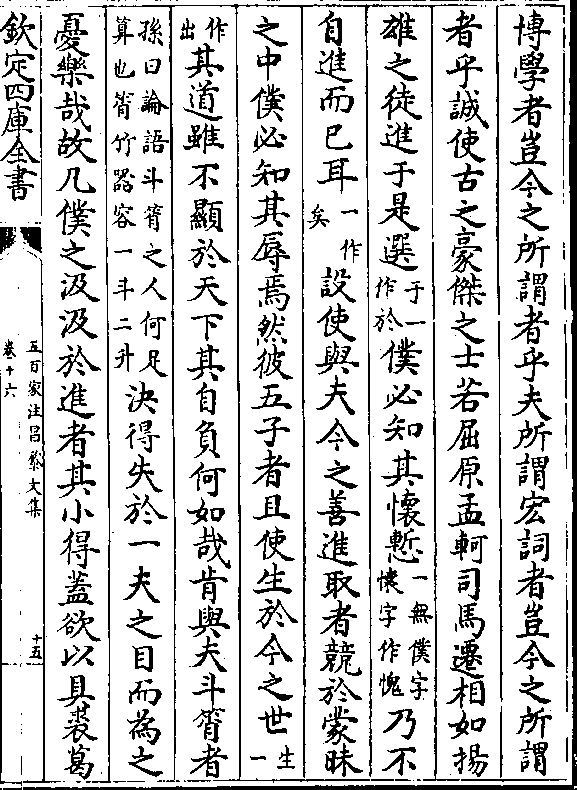 博學者豈今之所謂者乎夫所謂宏詞者豈今之所謂
者乎誠使古之豪傑之士若屈原孟軻司馬遷相如揚
雄之徒進于是選于一作於僕必知其懷慙一無僕字懷字作愧乃不
自進而已耳一作矣設使與夫今之善進取者競於蒙昧
之中僕必知其辱焉然彼五子者且使生於今之世生一
作出其道雖不顯於天下其自負何如哉肯與夫斗筲者
孫曰論語斗筲之人何足算也筲竹器容一斗二升決得失於一夫之目而為之
憂樂哉故凡僕之汲汲於進者其小得蓋欲以具裘葛
欽定四庫全書
五百家注昌黎文集
卷十六
十五